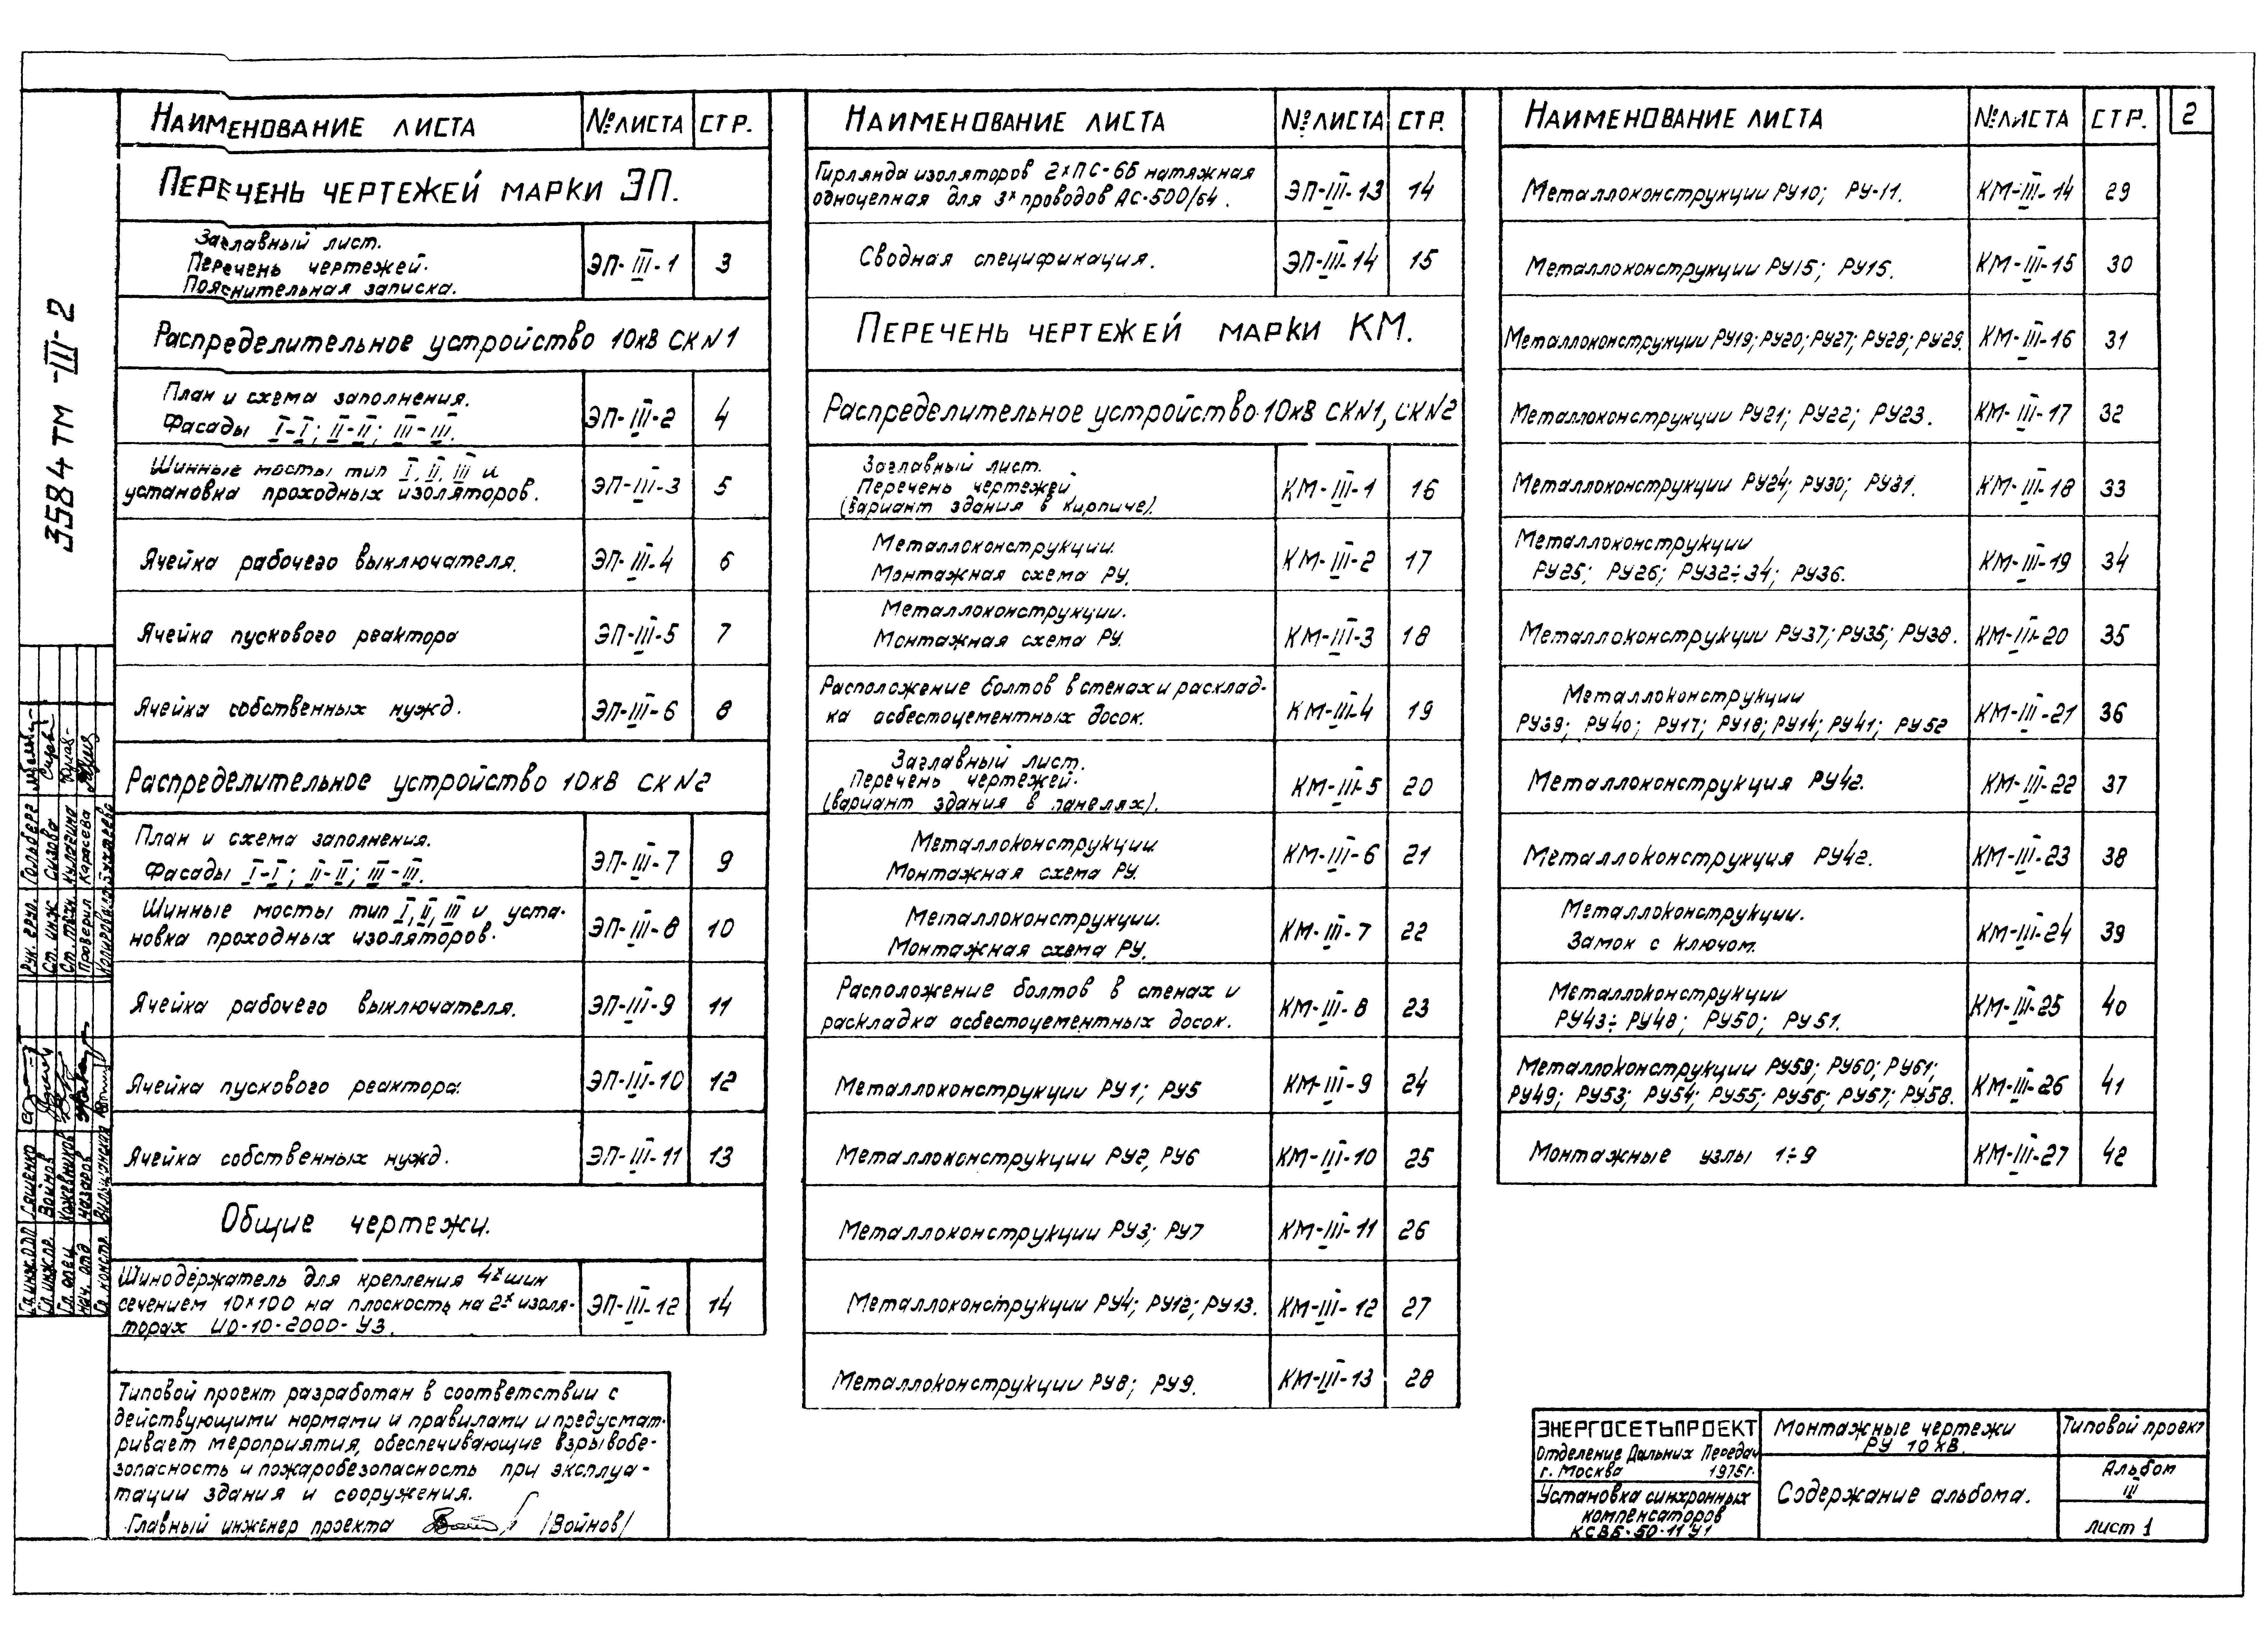 2
НАИМЕНОВАНИЕ ЛИСТА №ЛИСТА СТР.
ПЕРЕЧЕНЬ ЧЕРТЕЖЕЙ МАРКИ ЭП.
Заглавный лист.
Перечень чертежей.
Пояснительная записка.
ЭП-III-1 3
Распределительное устройство 10кВ СК N1
План и схема заполнения.
Фасады I-I; II-II; III-III.
ЭП-III-2 4
Шинные мосты тип I, II, III и
установка проходных изоляторов.
ЭП-III-3 5
Ячейка рабочего выключателя. ЭП-III-4 6
Ячейка пускового реактора ЭП-III-5 7
Ячейка собственных нужд. ЭП-III-6 8
Распределительное устройство 10кВ СК N2
План и схема заполнения.
Фасады I-I; II-II; III-III.
ЭП-III-7 9
Шинные мосты тип I, II, III и уста-
новка проходных изоляторов.
ЭП-III-8 10
Ячейка рабочего выключателя. ЭП-III-9 11
Ячейка пускового реактора. ЭП-III-10 12
Ячейка собственных нужд. ЭП-III-11 13
Общие чертежи.
Шинодержатель для крепления 4х шин
сечением 10×100 на плоскость на 2х изоля-
торах ИО-10-2000-У3.
ЭП-III-12 14
НАИМЕНОВАНИЕ ЛИСТА №ЛИСТА СТР.
Гирлянда изоляторов 2×ПС-6Б натяжная
одноцепная для 3х проводов АС-500/64.
ЭП-III-13 14
Сводная спецификация. ЭП-III-14 15
ПЕРЕЧЕНЬ ЧЕРТЕЖЕЙ МАРКИ КМ.
Распределительное устройство 10кВ СКN1, СКN2
Заглавный лист.
Перечень чертежей
(вариант здания в кирпиче).
КМ-III-1 16
Металлоконструкции.
Монтажная схема РУ.
КМ-III-2 17
Металлоконструкции.
Монтажная схема РУ.
КМ-III-3 18
Расположение болтов в стенах и расклад-
ка асбестоцементных досок.
КМ-III-4 19
Заглавный лист.
Перечень чертежей.
(вариант здания в панелях).
КМ-III-5 20
Металлоконструкции.
Монтажная схема РУ.
КМ-III-6 21
Металлоконструкции.
Монтажная схема РУ.
КМ-III-7 22
Расположение болтов в стенах и
раскладка асбестоцементных досок.
КМ-III-8 23
Металлоконструкции РУ1; РУ5 КМ-III-9 24
Металлоконструкции РУ2, РУ6 КМ-III-10 25
Металлоконструкции РУ3; РУ7 КМ-III-11 26
Металлоконструкции РУ4; РУ12; РУ13. КМ-III-12 27
Металлоконструкции РУ8; РУ9. КМ-III-13 28
НАИМЕНОВАНИЕ ЛИСТА №ЛИСТА СТР.
Металлоконструкции РУ10; РУ-11. КМ-III-14 29
Металлоконструкции РУ15; РУ16. КМ-III-15 30
Металлоконструкции РУ19; РУ20; РУ27; РУ28; РУ29. КМ-III-16 31
Металлоконструкции РУ21; РУ22; РУ23. КМ-III-17 32
Металлоконструкции РУ24; РУ30; РУ31. КМ-III-18 33
Металлоконструкции
РУ25; РУ26; РУ32÷34; РУ36.
КМ-III-19 34
Металлоконструкции РУ37; РУ35; РУ38. КМ-III-20 35
Металлоконструкции
РУ39; РУ40; РУ17; РУ18; РУ14; РУ41; РУ52
КМ-III-21 36
Металлоконструкция РУ42. КМ-III-22 37
Металлоконструкция РУ42. КМ-III-23 38
Металлоконструкции.
Замок с ключом.
КМ-III-24 39
Металлоконструкции
РУ43÷РУ48; РУ50; РУ51.
КМ-III-25 40
Металлоконструкции РУ59; РУ60; РУ61;
РУ49; РУ53; РУ54; РУ55; РУ56; РУ57; РУ58.
КМ-III-26 41
Монтажные узлы 1÷9 КМ-III-27 42
3584 ТМ -III-2
Рук. груп. Гольберг
Ст. инж Сизова
Ст. техн. Кулагина
Проверил Карасева
Копировала
Гл.инж.ОДП Ляшенко
Гл. инж.пр. Войнов
Гл. спец. Кожевников
нач. отд Назаров
Гл. констр.
Типовой проект разработан в соответствии с
действующими нормами и правилами и предусмат-
ривает мероприятия, обеспечивающие взрывобе-
зопасность и пожаробезопасность при эксплуа-
тации здания и сооружения.
Главный инженер проекта /Войнов/
ЭНЕРГОСЕТЬПРОЕКТ
Отделение Дальних Передач
г. Москва 1975г.
Установка синхронных
компенсаторов
КСВБ-50-11У1
Монтажные чертежи
РУ 10 кВ.
Содержание альбома.
Типовой проект
Альбом
III
лист 1